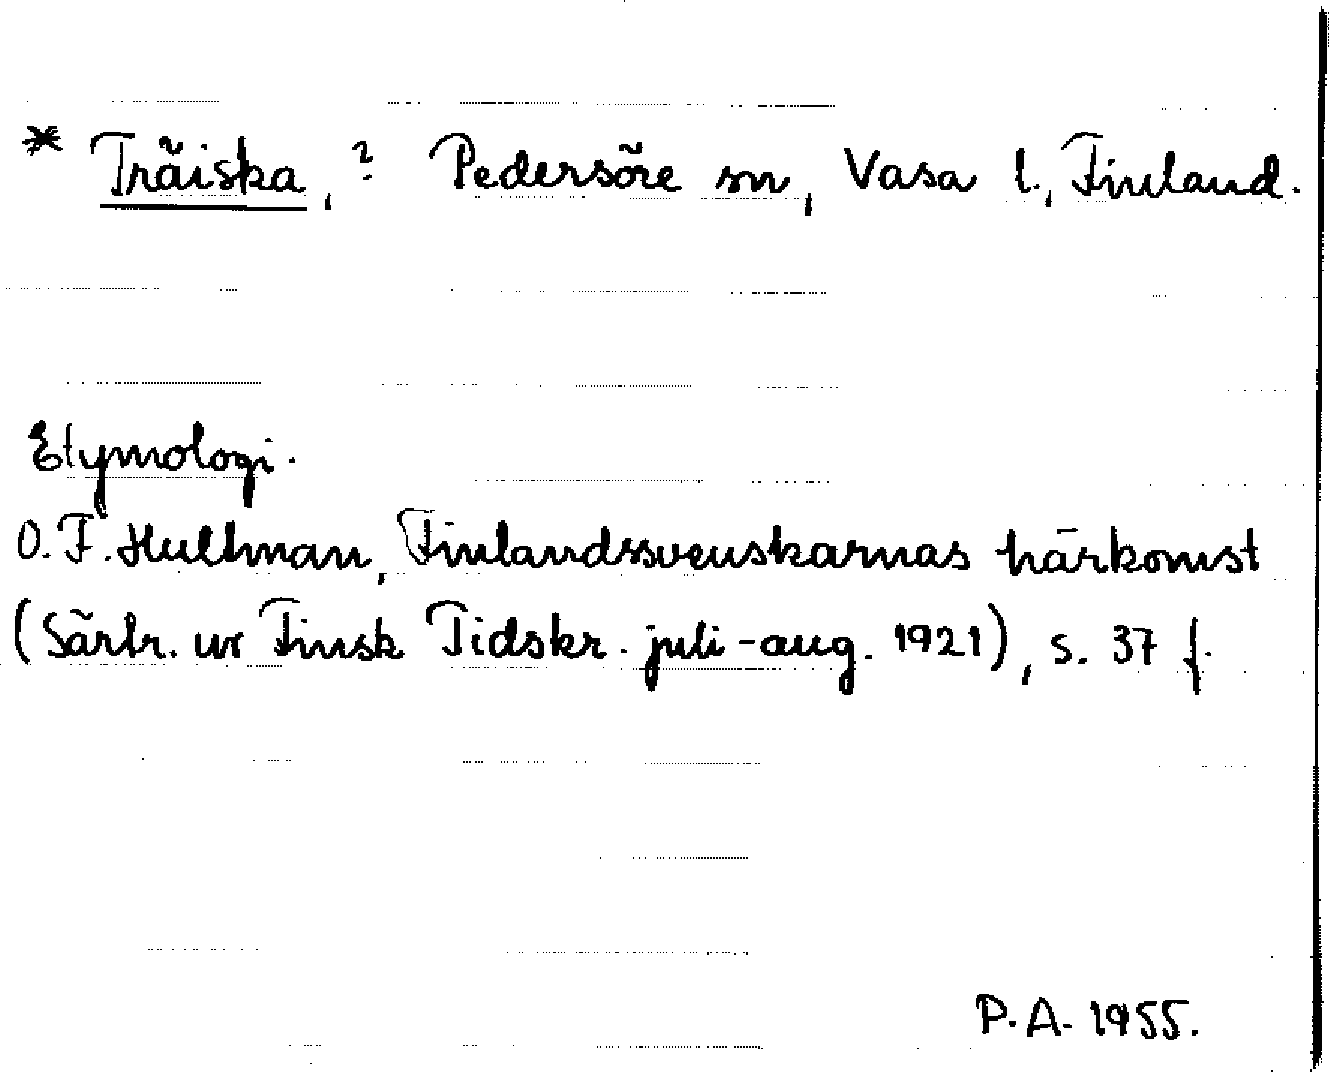 * Träiska, ? Pedersöre sn, Vasa l., Finland.
Etymologi.
O.F. Hultman, Finlandssvenskarnas härkomst
(Särtr. ur Finsk Tidskr. juli-aug. 1921), s. 37 f.
P.A. 1955.